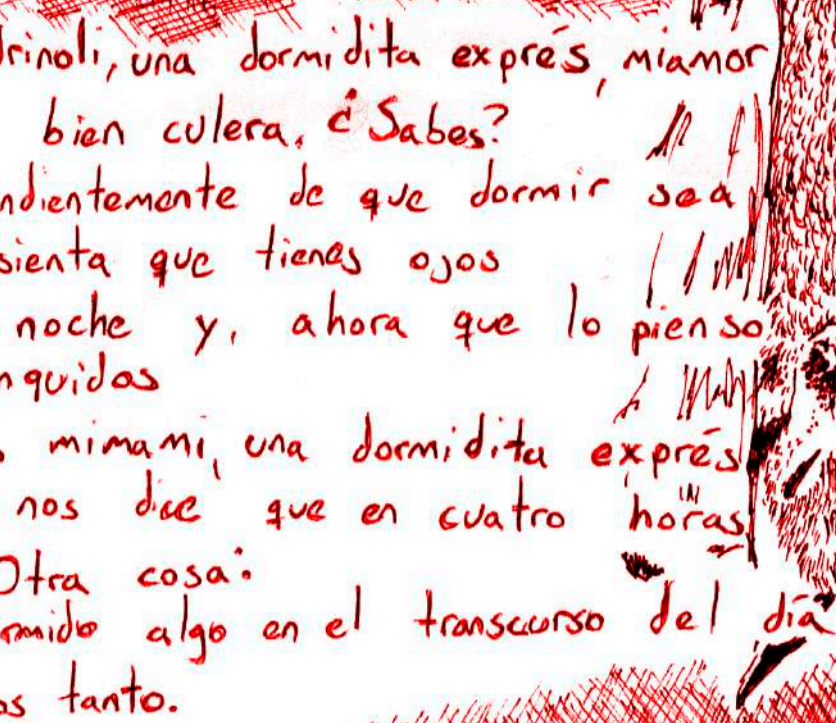 drinoli, una dormidita exprés, miamor
bien culera. ¿Sabes?
ndientemente de que dormir sea
sienta que tienes ojos
noche y, ahora que lo pienso
nquidos
mimami, una dormidita exprés
nos dice que en cuatro horas
Otra cosa:
rmido algo en el transcurso del día
os tanto.